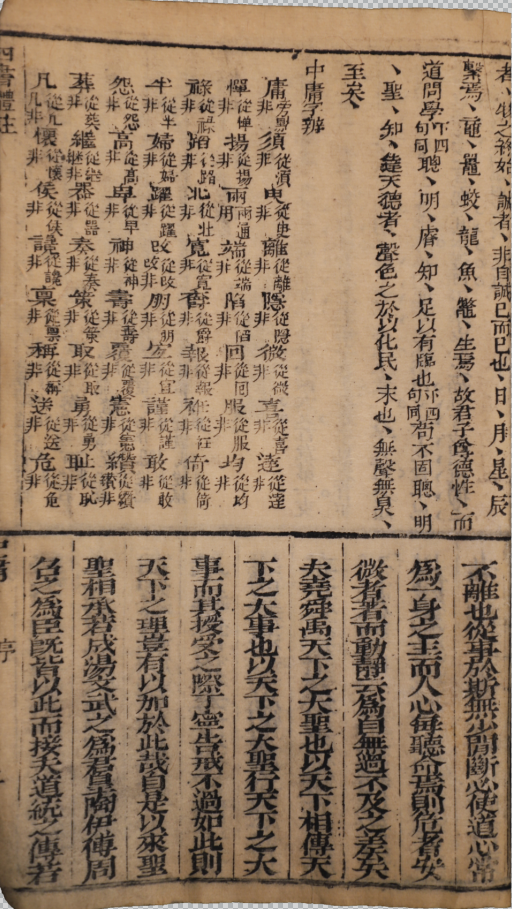 者、物之終始、誠者、非自誠己而已也、日、月、星、辰
繫焉、黿、鼉、蛟、龍、魚、鼈、生焉、故君子尊德性、而
道問學、下四句同聰、明、睿、知、足以有臨也下四句同苟不固聰、明
、聖、知、達天德者、聲色之於以化民、末也、無聲無臭、
至矣、
中庸字辨
庸須從湏非離從離非隱從隱非微從微非喜從喜非達從逹非
憚從憚非揚從揚非兩用兩通端從端非陷從陷非回從囘非服從服非均從均非
祿從祿非路從路非北從北非寬從寬非奮從奮非報從報非衽從衽非倚從倚非
半從半非婦從婦非躍從躍非改從攺非朋從朋非宜從宜非謹從謹非敢從敢非
怨從怨非高從髙非卑從卑非神從神非壽從壽非覆從覆非憲從憲非纘從纘非
葬從葬非繼從継非器從噐非奏從奏非策從策非取從取非勇從勇非恥從耻非
凡從凡非懷從懷非侯從侯非讒從讒非稟從稟非稱從稱非送從送非危從危非
四書體註
不離也從事於斯無少間斷必使道心常
爲一身之主而人心每聽命焉則危者安
微者著而動靜云爲自無過不及之差矣
夫堯舜禹天下之大聖也以天下相傳天
下之大事也以天下之大聖行天下之大
事而其授受之際丁寧告戒不過如此則
天下之理豈有以加於此哉自是以來聖
聖相承若成湯文武之爲君臯陶伊傅周
召之爲臣既皆以此而接夫道統之傳若
中庸 序